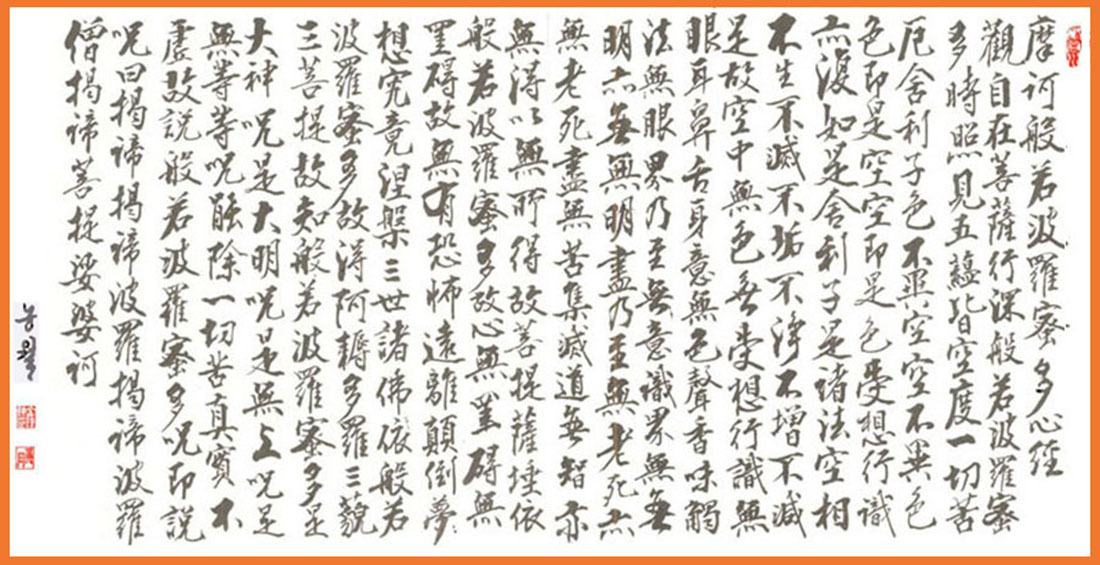 摩訶般若波羅蜜多心經
觀自在菩薩行深般若波羅蜜
多時照見五蘊皆空度一切苦
厄舍利子色不異空空不異色
色即是空空即是色受想行識
亦復如是舍利子是諸法空相
不生不滅不垢不淨不增不減
是故空中無色無受想行識無
眼耳鼻舌身意無色聲香味觸
法無眼界乃至無意識界無無
明亦無無明盡乃至無老死亦
無老死盡無苦集滅道無智亦
無得以無所得故菩提薩埵依
般若波羅蜜多故心無罣礙無
罣礙故無有恐怖遠離顛倒夢
想究竟涅槃三世諸佛依般若
波羅蜜多故得阿耨多羅三藐
三菩提故知般若波羅蜜多是
大神呪是大明呪是無上呪是
無等等呪能除一切苦真實不
虛故說般若波羅蜜多呪即說
呪曰揭諦揭諦波羅揭諦波羅
僧揭諦菩提娑婆訶